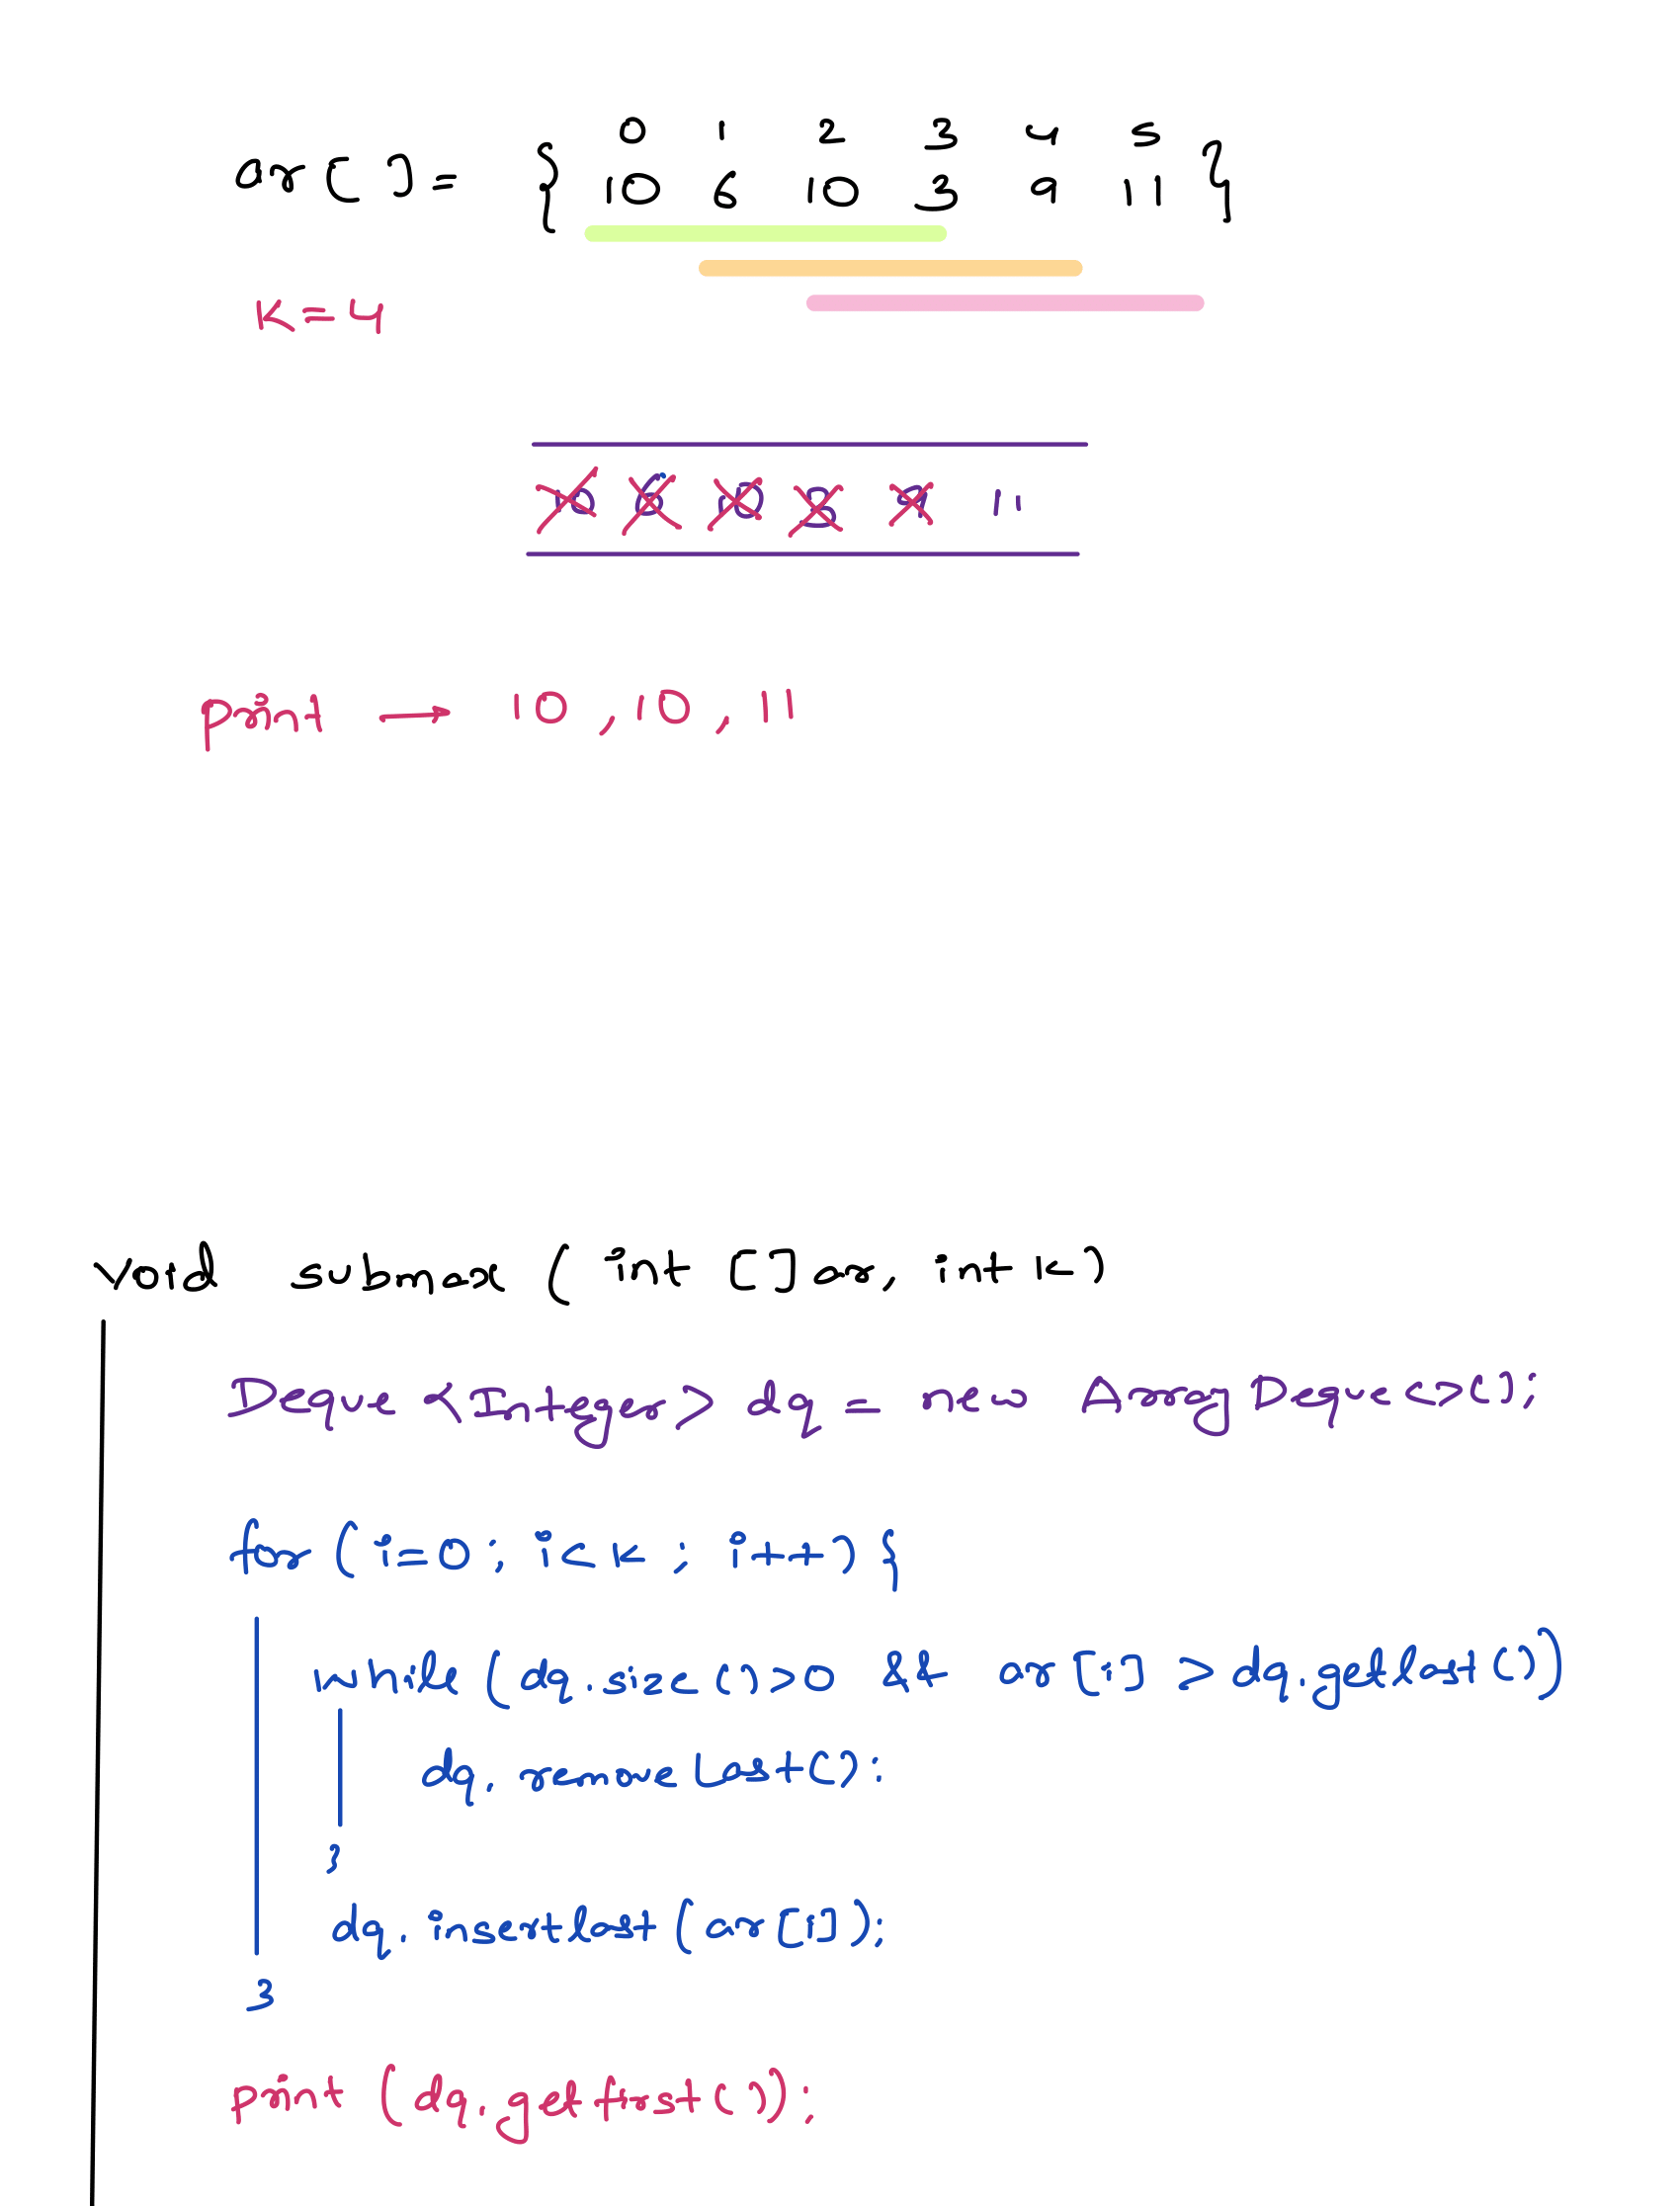 0 1 2 3 4 5
ar[ ]= { 10 6 10 3 9 11 }
K=4
10 6 10 3 9 11
print → 10, 10, 11
void submax ( int [] ar, int k)
Deque <Integer> dq = new Array Deque<>();
for ( i=0; i<k ; i++) {
while (dq.size()>0 && ar[i] > dq.getlast())
dq. remove Last();
}
dq. insertlast (ar[i]);
}
print (dq.getfirst());